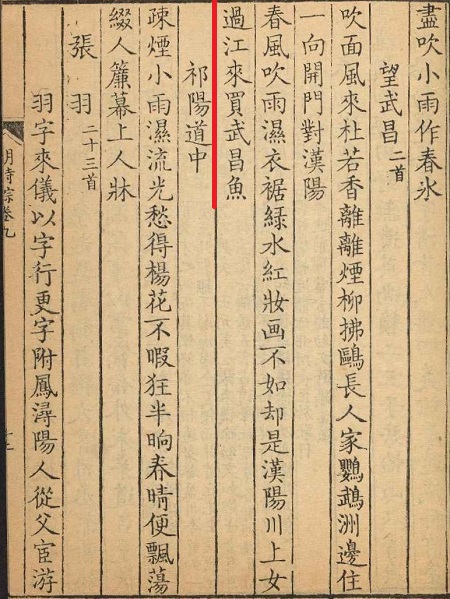 盡吹小雨作春氷
望武昌二首
吹面風來杜若香離離煙柳拂鷗長人家鸚鵡洲邊住
一向開門對漢陽
春風吹雨濕衣裾緑水紅妝画不如却是漢陽川上女
過江來買武昌魚
祁陽道中
疎煙小雨濕流光愁得楊花不暇狂半晌春晴便飄蕩
綴人簾幕上人牀
張羽二十三首
羽字來儀以字行更字附鳳潯陽人從父宦游
明詩綜卷九